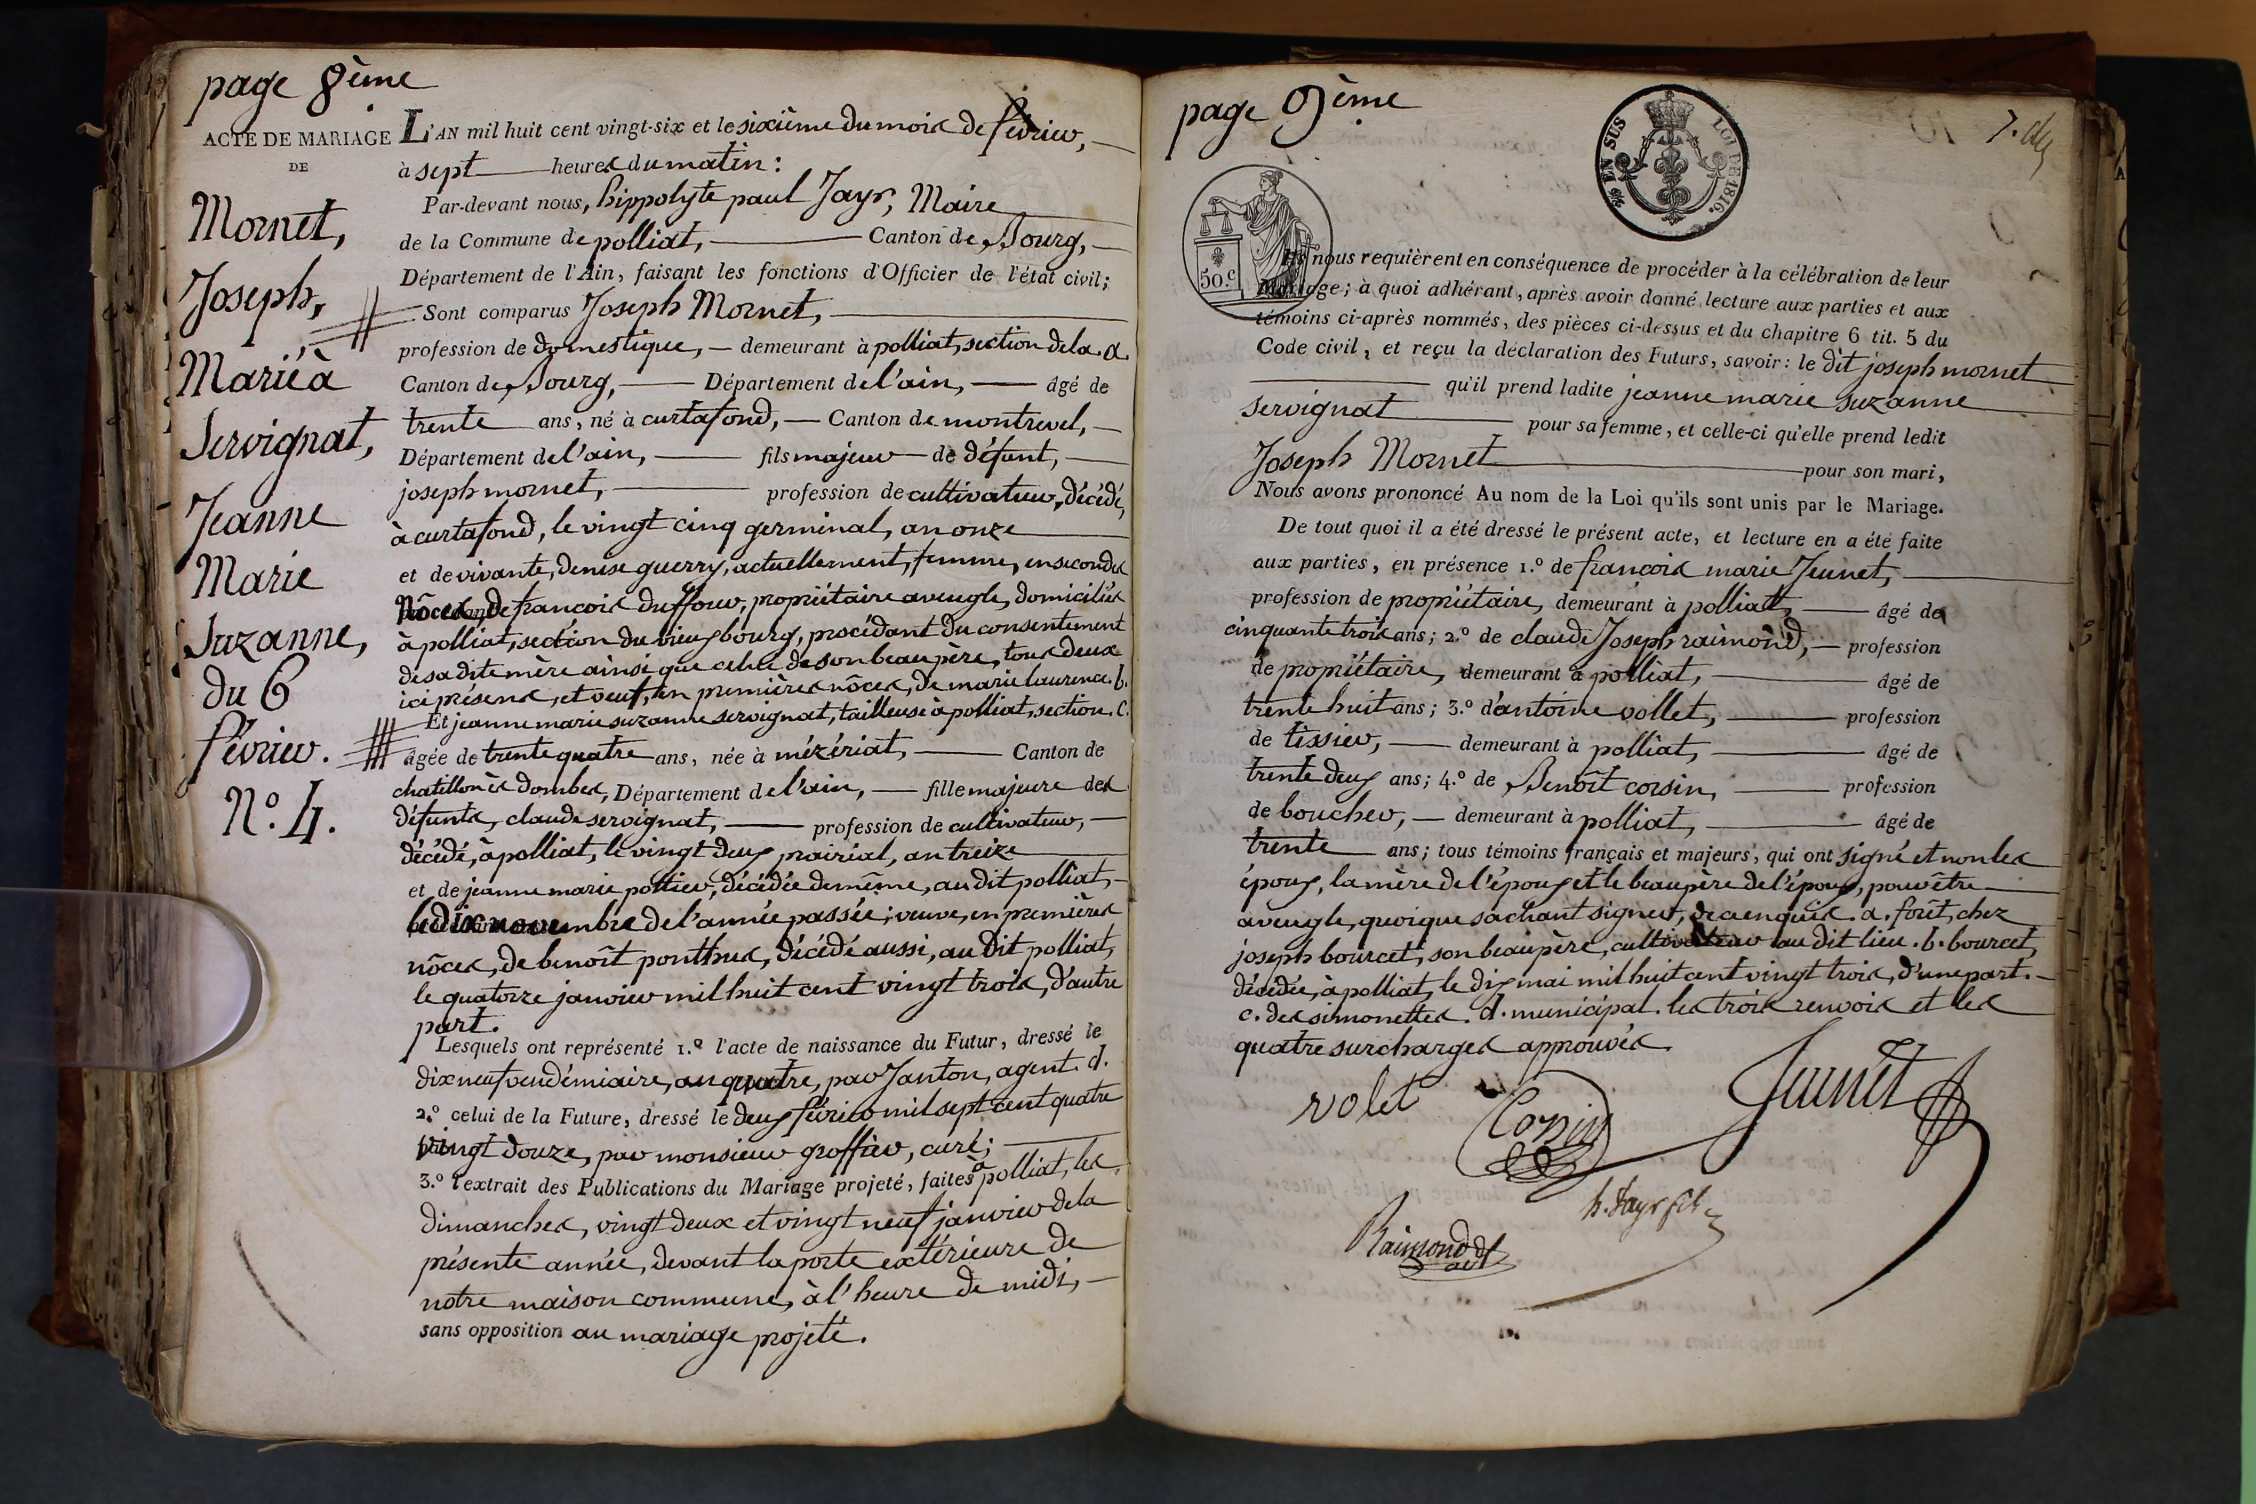 page 8ème
ACTE DE MARIAGE
DE
Mornet,
Joseph,
Marié à
Servignat,
Jeanne
Marie
Suzanne,
du 6
février.
N.º 4.
L'AN mil huit cent vingt-six et le sixième du mois de février,
à sept heures du matin :
Par-devant nous, hippolyte paul Jayr, Maire
de la Commune de polliat, Canton de Bourg,
Département de l'Ain, faisant les fonctions d'Officier de l'état civil;
Sont comparus Joseph Mornet,
profession de domestique, demeurant à polliat, section de la .a.
Canton de Bourg, Département de l'ain, âgé de
trente ans, né à curtafond, Canton de montrevel,
Département de l'ain, fils majeur de défunt,
joseph mornet, profession de cultivateur, décédé,
à curtafond, le vingt cinq germinal, an onze
et de vivante, denise guerry, actuellement, femme, en secondes
nôces, de françois duffour, propriétaire aveugle, domiciliés
à polliat, section du vieux bourg, procédant du consentement
de sa dite mère ainsi que celui de son beau père, tous deux
ici présens, et veuf, en premières nôces, de marie laurence .b.
Et jeanne marie suzanne servignat, tailleuse à polliat, section .c.
âgée de trente quatre ans, née à mézériat, Canton de
chatillon ès dombes, Département de l'ain, fille majeure des
défunts, claude servignat, profession de cultivateur,
décédé, à polliat, le vingt deux prairial, an treize
et de jeanne marie pottier, décédée de même, au dit polliat,
le dix novembre de l'année passée; veuve, en premières
nôces, de benoît ponthus, décédé aussi, au dit polliat,
le quatorze janvier mil huit cent vingt trois, d'autre
part.
Lesquels ont représenté 1.º l'acte de naissance du Futur, dressé le
dix neuf vendémiaire, an quatre, par Janton, agent .d.
2.º celui de la Future, dressé le deux février mil sept cent quatre
vingt douze, par monsieur groffier, curé;
3.º l'extrait des Publications du Mariage projeté, faites à polliat, les
dimanches, vingt deux et vingt neuf janvier de la
présente année, devant la porte extérieure de
notre maison commune, à l'heure de midi,
sans opposition au mariage projeté.
page 9ème
EN SUS
LOI DE 1816.
50.c
Ils nous requièrent en conséquence de procéder à la célébration de leur
Mariage; à quoi adhérant, après avoir donné lecture aux parties et aux
témoins ci-après nommés, des pièces ci-dessus et du chapitre 6 tit. 5 du
Code civil, et reçu la déclaration des Futurs, savoir: le dit joseph mornet
qu'il prend ladite jeanne marie suzanne
servignat pour sa femme, et celle-ci qu'elle prend ledit
Joseph Mornet pour son mari,
Nous avons prononcé Au nom de la Loi qu'ils sont unis par le Mariage.
De tout quoi il a été dressé le présent acte, et lecture en a été faite
aux parties, en présence 1.º de françois marie Jeunet,
profession de propriétaire, demeurant à polliat, âgé de
cinquante trois ans; 2.º de claude Joseph raimond, profession
de propriétaire, demeurant à polliat, âgé de
trente huit ans; 3.º d'antoine vollet, profession
de tissier, demeurant à polliat, âgé de
trente deux ans; 4.º de Benoît corsin, profession
de boucher, demeurant à polliat, âgé de
trente ans; tous témoins français et majeurs, qui ont signé et non les
époux, la mère de l'époux et le beau père de l'époux, pour être
aveugle, quoique sachant signer, de ce enquis .a. forêt, chez
joseph bourcet, son beau père, cultivateur au dit lieu .b. bourcet,
décédée, à polliat, le dix mai mil huit cent vingt trois, d'une part.
c. des simonettes .d. municipal. les trois renvois et les
quatre surcharges approuvés.
volet
Corsin
Jeunet
h. Jayr fils
Raimond